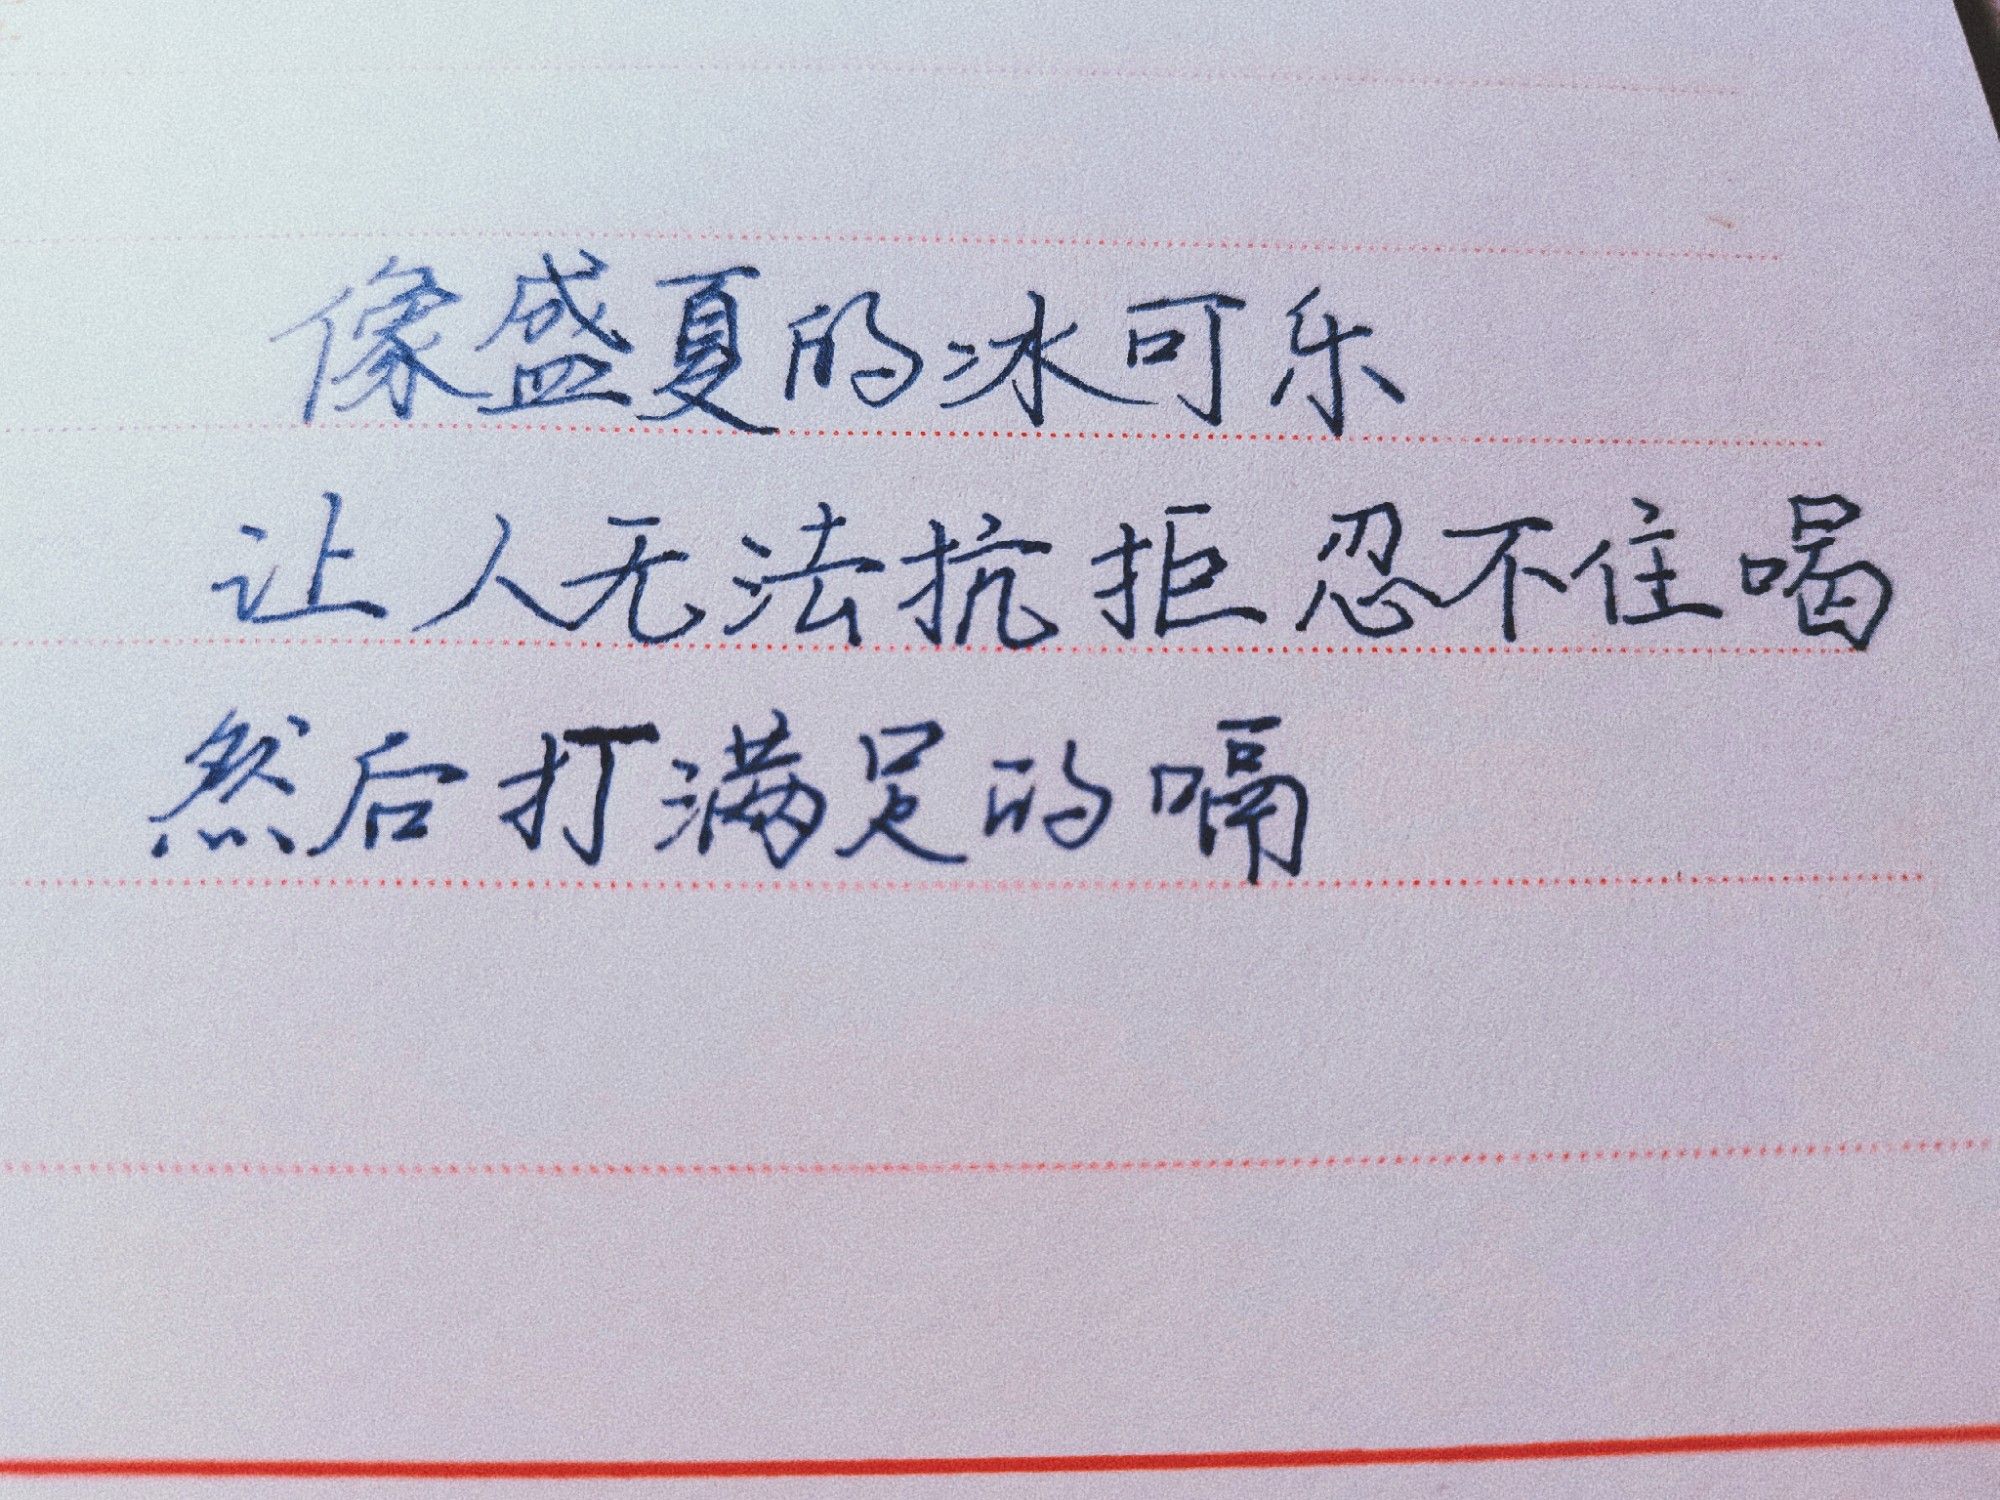 像盛夏的冰可乐
让人无法抗拒忍不住喝
然后打满足的嗝